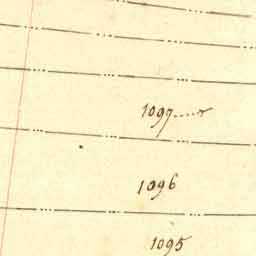 1097
1096
1095